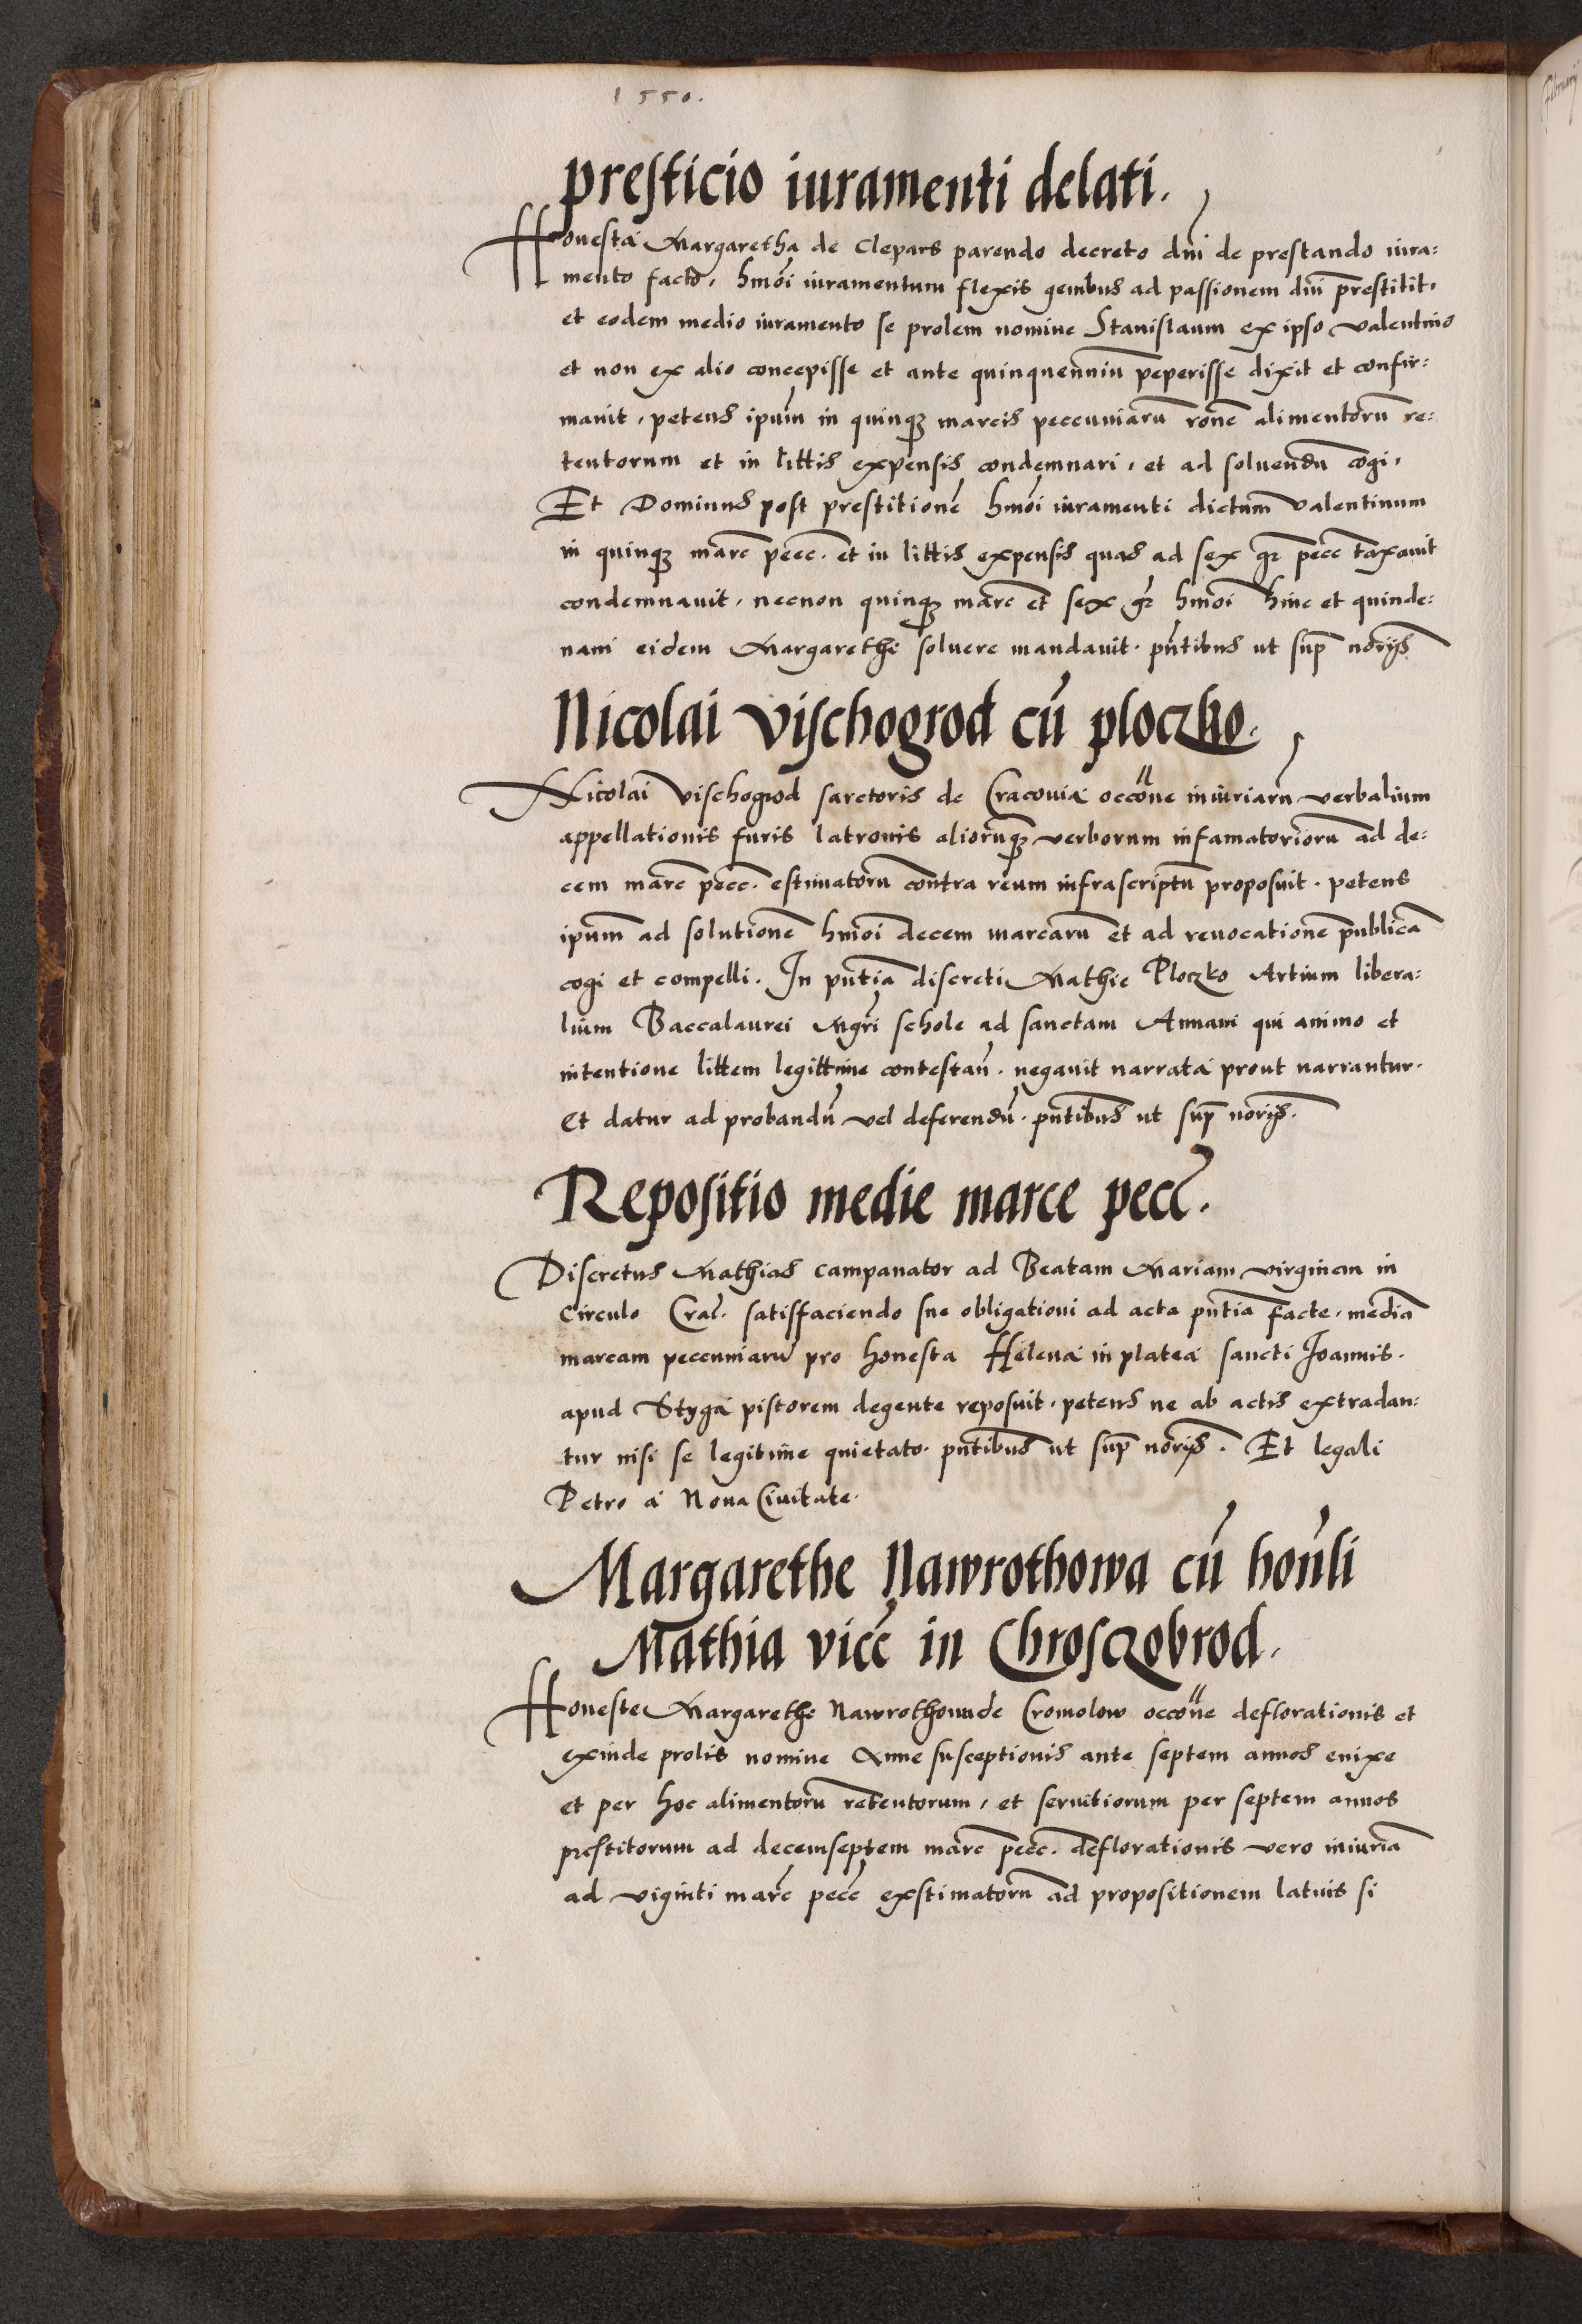 1550.
presticio iuramenti delati.
Honesta Margaretha de Clepars parendo decreto dni de prestando iura:
mento facto, hmoi iuramentum flexis genibus ad passionem dni prestitit,
et eodem medio iuramento se prolem nomine Stanislaum ex ipso Valentino
et non ex alio concepisse et ante quinquenniu peperisse dixit et confir:
mauit, petens ipum in quinqz marcis peccuniaru rone alimentoru re:
tentorum et in littis expensis condemnari, et ad soluendu cogi,
Et Dominus post prestitione hmoi iuramenti dictum Valentinum
in quinqz marc pecc. et in littis expensis quas ad sex gr pecc taxauit
condemnauit, necnon quinqz marc et sex gr hmoi hinc et quinde:
nam eidem Margarethe soluere mandauit. pntibus ut sup norijs
Nicolai Vischogrod cu ploczko.
Nicolai Vischogrod sarctoris de Cracouia occone iniuriaru verbalium
appellationis furis latronis aliorumqz verborum infamatorioru ad de:
cem marc pecc. estimatoru contra reum infrascriptu proposuit. petens
ipum ad solutione hmoi decem marcaru et ad reuocatione publica
cogi et compelli. In pntia discreti Mathie Ploczko Artium libera:
lium Baccalaurei Mgri schole ad sanctam Annam qui animo et
intentione littem legittime contestan. negauit narrata prout narrantur.
Et datur ad probandu vel deferendu. pntibus ut sup norijs.
Repositio medie marce pecc.
Discretus Mathias campanator ad Beatam Mariam virginem in
Circulo Crac. satisfaciendo sue obligationi ad acta pntia facte, media
marcam peccuniaru pro honesta Helena in platea sancti Joannis.
apud Styga pistorem degente reposuit, petens ne ab actis extradan:
tur nisi se legitime quietato. pntibus ut sup norijs. Et legali
Petro a Noua Ciuitate.
Margarethe Nawrothowa cu honli
Mathia vicc in Chrosczobrod.
Honeste Margarethe Nawrothowa de Cromolow occone deflorationis et
exinde prolis nomine Anne susceptionis ante septem annos enixe
et per hoc alimentoru retentorum, et seruitiorum per septem annos
prestitorum ad decemseptem marc pecc. deflorationis vero iniuria
ad viginti marc pecc exstimatoru ad propositionem latius si